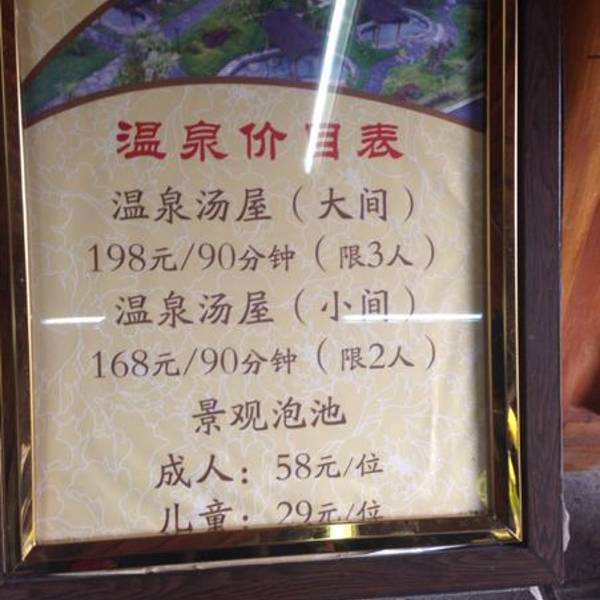 温泉价目表
温泉汤屋（大间）
198元/90分钟（限3人）
温泉汤屋（小间）
168元/90分钟（限2人）
景观泡池
成人：58元/位
儿童：29元/位